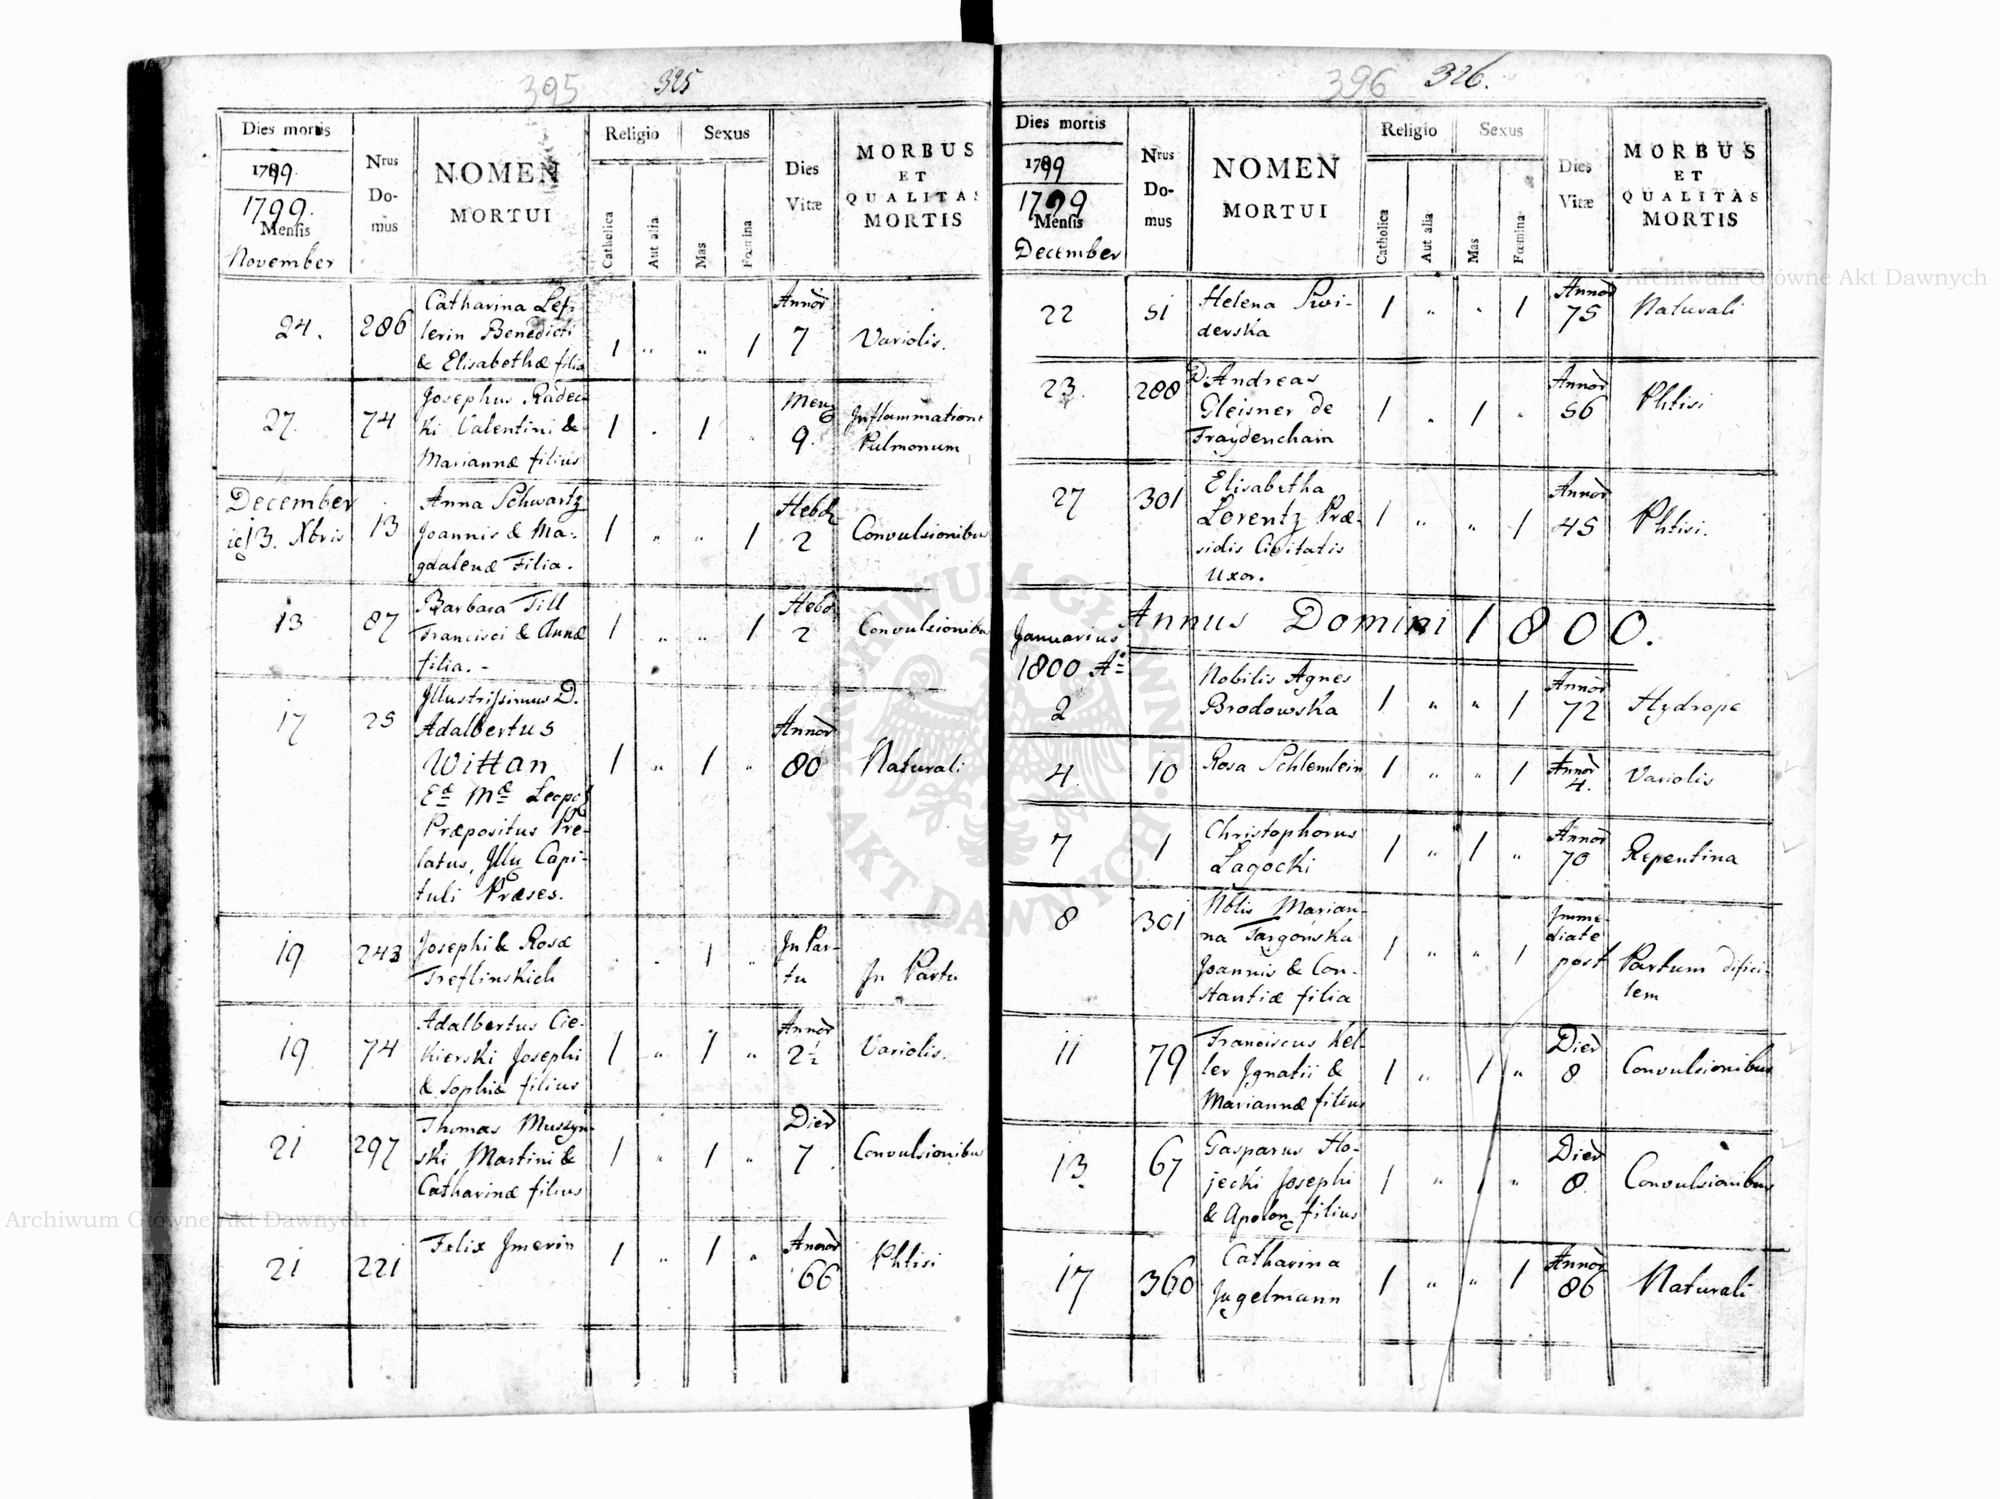 395 325
Dies mortis
1799.
1799.
Mensis
November
Nrus
Do-
mus
NOMEN
MORTUI
Religio
Catholica
Aut alia
Sexus
Mas
Fœmina
Dies
Vitæ
MORBUS
ET
QUALITAS
MORTIS
24. 286
Catharina Lef-
lerin Benedicti
& Elisabethæ filia
1 " " 1
Annor
7
Variolis.
27. 74
Josephus Radec-
ki Valentini &
Mariannæ filius
1 . 1 .
Mens
9.
Inflammatione
Pulmonum
December
13. Xbris 13
Anna Schwartz
Joannis & Ma-
gdalenæ Filia.
1 " " 1
Hebd
2
Convulsionibus
13 87
Barbara Till
Francisci & Annæ
filia. -
1 " " 1
Hebd
2
Convulsionibus
17 25
Illustrissimus D.
Adalbertus
Wittan
Eæ Mæ Leopol
Præpositus Præ-
latus, Illu Capi-
tuli Præses.
1 " 1 "
Annor
80
Naturali
19 243
Josephi & Rosæ
Treflinskich
. . 1 .
In Par-
tu
In Partu
19 74
Adalbertus Cie-
kierski Josephi
& Sophiæ filius
1 " 1 "
Annor
2½
Variolis.
21 297
Thomas Muszyn-
ski Martini &
Catharinæ filius
1 " 1 "
Dier
7.
Convulsionibus
21 221
Felix Imerin
1 " 1 "
Annor
66
Phtisi
396 326.
Dies mortis
1799
1799
Mensis
December
Nrus
Do-
mus
NOMEN
MORTUI
Religio
Catholica
Aut alia
Sexus
Mas
Fœmina
Dies
Vitæ
MORBUS
ET
QUALITAS
MORTIS
22 51
Helena Swi-
derska
1 " " 1
Annor
75
Naturali
23. 288
D. Andreas
Gleisner de
Fraydenchain
1 " 1 "
Annor
56
Phtisi
27 301
Elisabetha
Lorentz Præ-
sidis Civitatis
Uxor.
1 " " 1
Annor
45
Phtisi.
Annus Domini 1800.
Januarius
1800 Ao
2
Nobilis Agnes
Brodowska
1 " " 1
Annor
72
Hydrope
4. 10
Rosa Schlemlein
1 " " 1
Annor
4.
Variolis
7 1
Christophorus
Lagocki
1 " 1 "
Annor
70
Repentina
8 301
Nblis Marian-
na Targonska
Joannis & Con-
stantiæ filia
1 " " 1
Imme-
diate
post
Partum difici-
lem
11 79
Franciscus Kel-
ler Ignatii &
Mariannæ filius
1 " 1 "
Dier
8
Convulsionibus
13. 67
Gasparus Ho-
jecki Josephi
& Apolon filius
1 " 1 "
Dier
8.
Convulsionibus
17 360
Catharina
Jugelmann
1 " " 1
Annor
86
Naturali
Archiwum Główne Akt Dawnych
Archiwum Główne Akt Dawnych
ARCHIWUM GŁÓWNE
AKT DAWNYCH